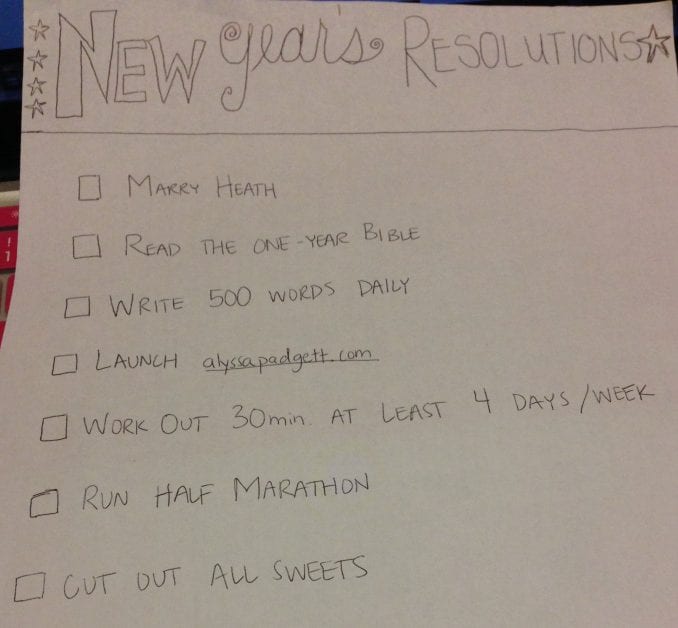 NEW year's RESOLUTIONS
MARRY HEATH
READ THE ONE-YEAR BIBLE
WRITE 500 WORDS DAILY
LAUNCH alyssapadgett.com
WORK OUT 30min. AT LEAST 4 DAYS/WEEK
RUN HALF MARATHON
CUT OUT ALL SWEETS
!
1